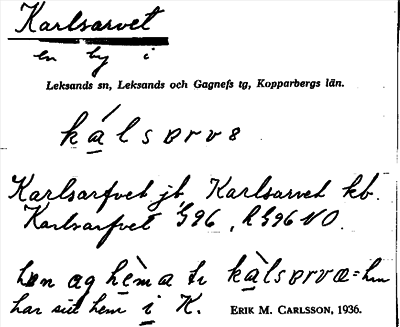 Karlsarvet
en by i
Leksands sn, Leksands och Gagnefs tg, Kopparbergs län.
kálsɐrvɘ
Karlsarfvet jb. Karlsarvet kb.
Karlsarfvet G96, RG96NO.
hɐn ag hèma kàlsɐrvɑ = hn
har sitt hem i K. ERIK M. CARLSSON, 1936.